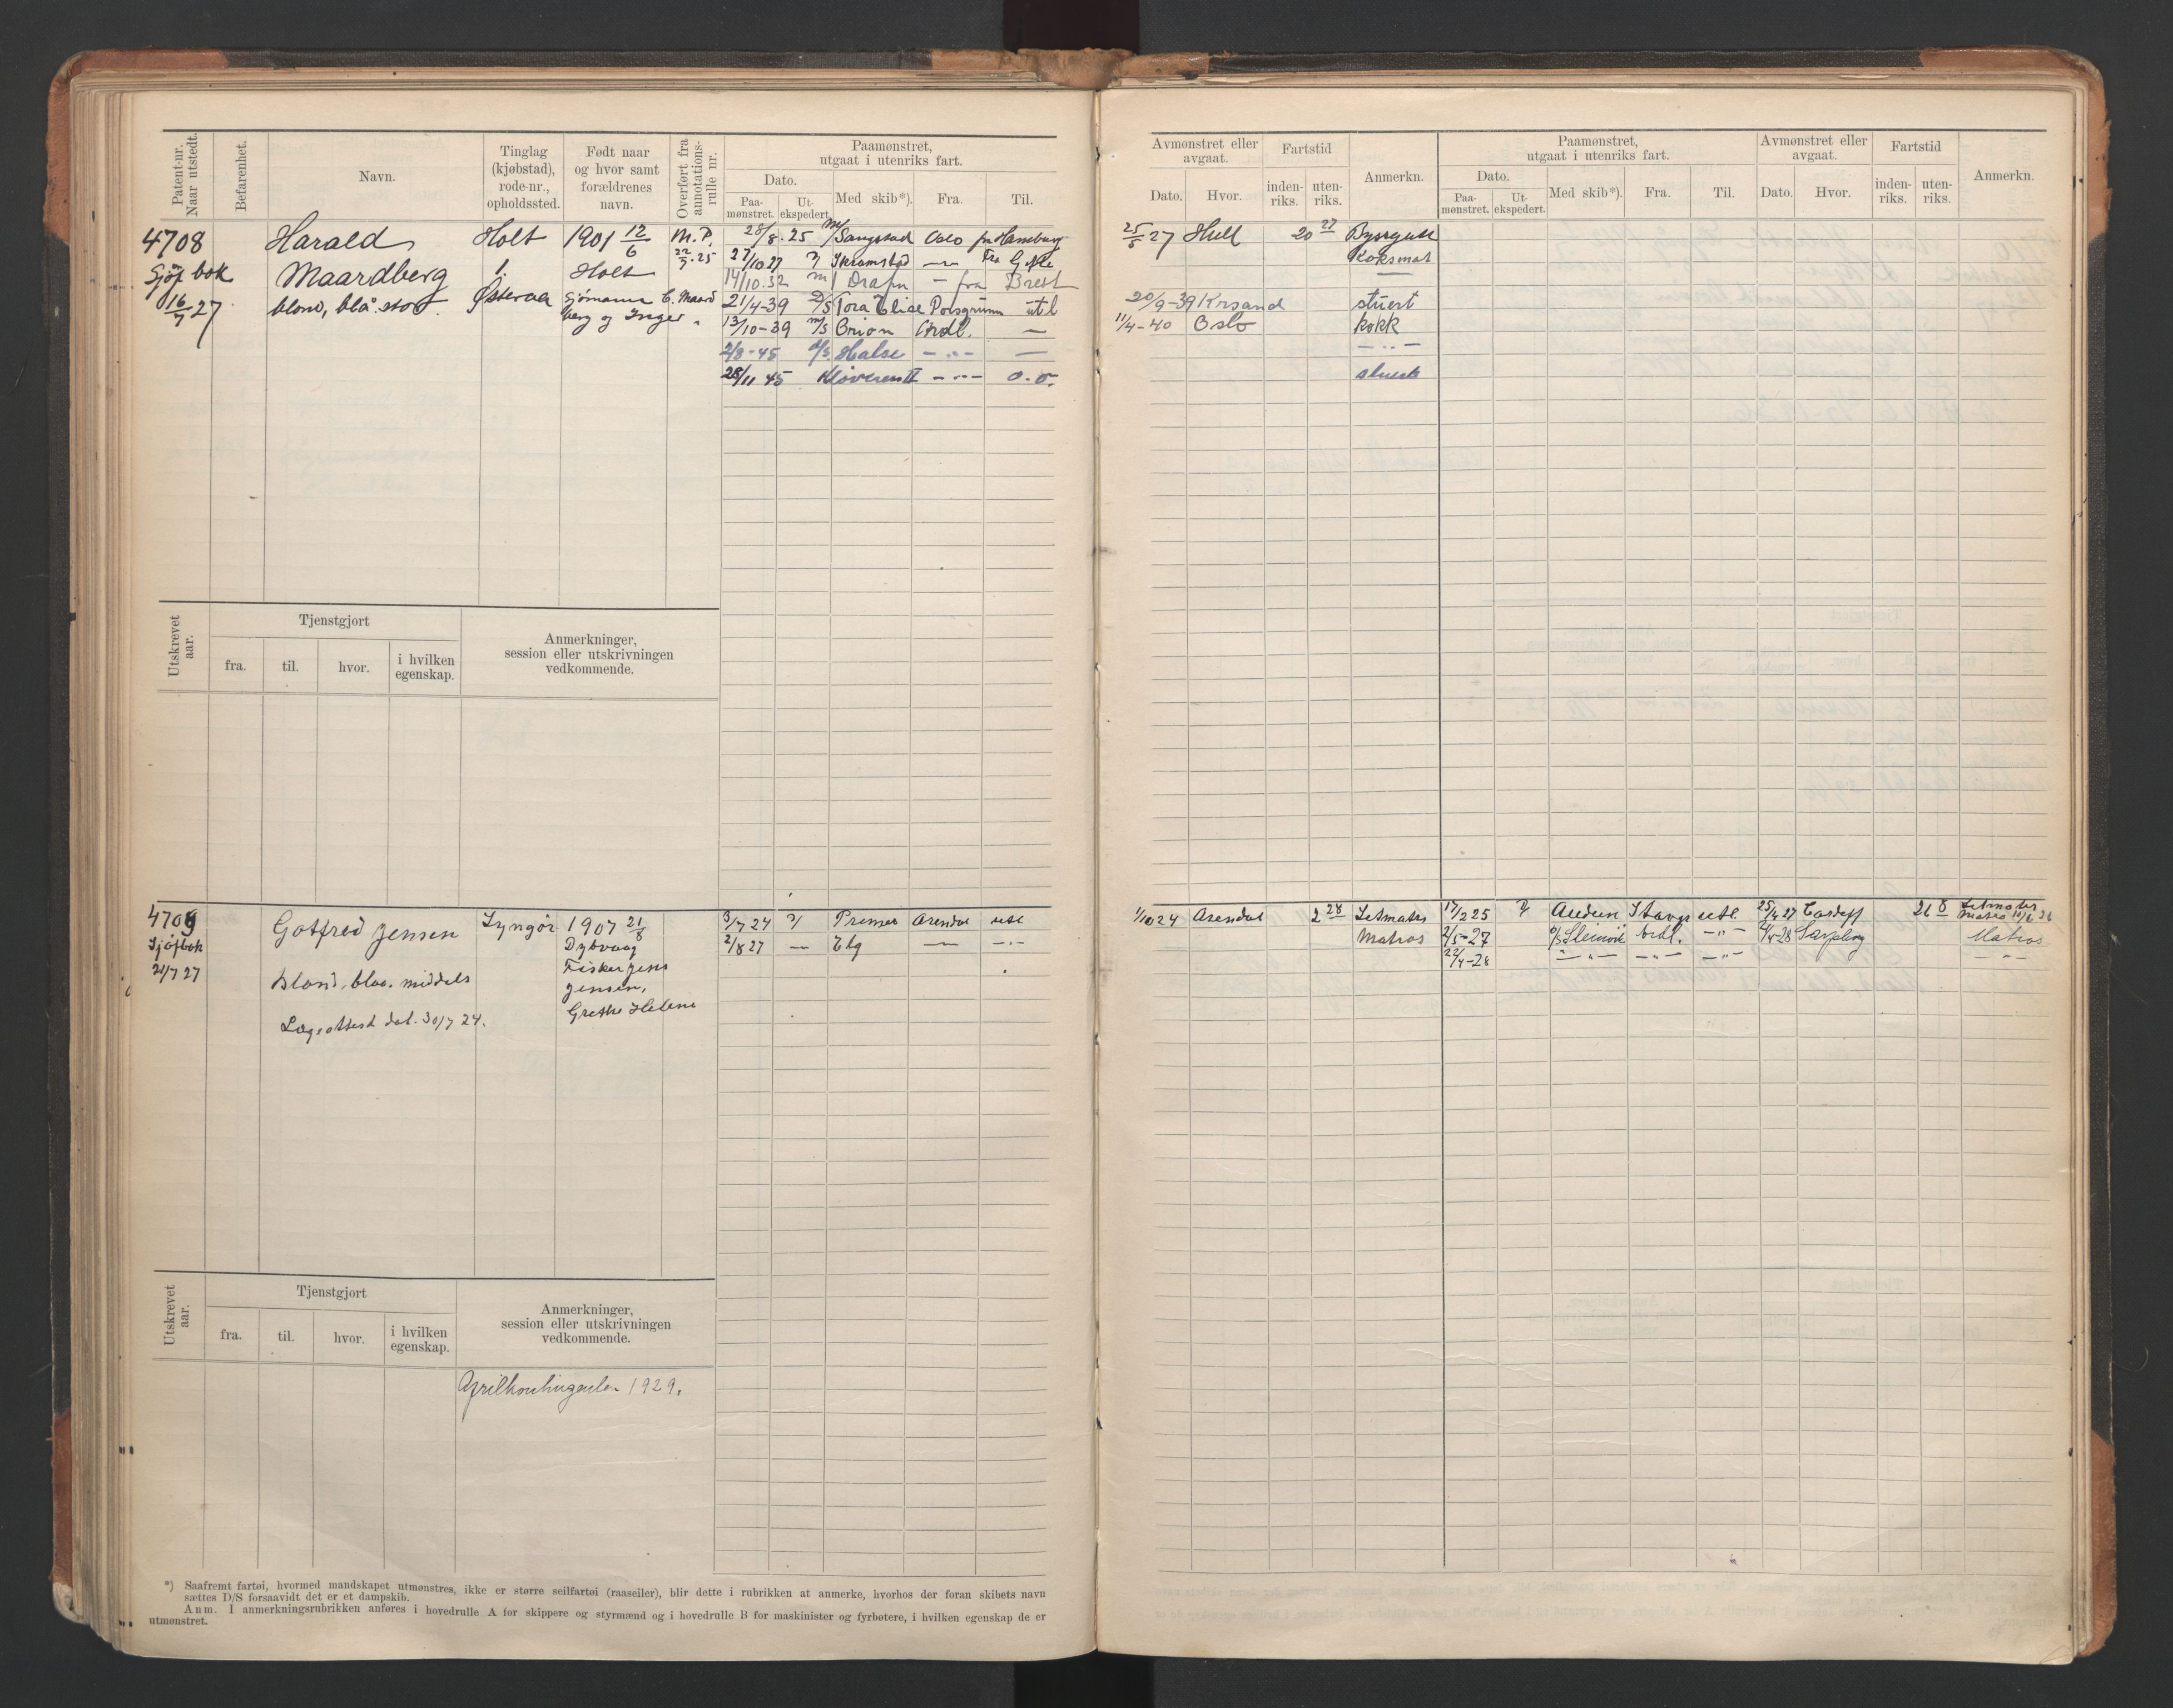 Patent-nr. Naar utstedt.
Befarenhet.
Navn.
Tinglag (kjøbstad), rode-nr., opholdssted.
Født naar og hvor samt forældrenes navn.
Overført fra annotations-rulle nr.
Paamønstret, utgaat i utenriks fart.
Dato.
Paa-mønstret.
Ut-ekspedert.
Med skib*).
Fra.
Til.
4708
Sjøf bok
16/7 27
Harald
Maardberg
blond, blå. stor.
Holt
1.
Østeraa
1901 12/6
Holt
Sjömann C. Maard
berg og Inger
M.P.
22/7.25
28/8.25 m/ Sangstad Oslo fra Hamburg
27/10 27 Skramstad — fra Gefle
14/10.32 m/ Drafn — fra Brest
21/4-39 D/S Tora Elise Porsgrunn utl
13/10-39 m/s Orion Ardl. —
2/8-45 d/s. Halse — " — —
28/11 45 Kløveren II — " — o.o.
Utskrevet aar.
Tjenstgjort
fra.
til.
hvor.
i hvilken egenskap.
Anmerkninger, session eller utskrivningen vedkommende.
4709
Sjøfbok
21/7 27
Gotfred Jensen
Blond, blaa. middels
Lægeattest dat. 30/7 24.
Lyngör
1907 21/8
Dybvaag
Fisker Jens
Jensen,
Grethe Helene
3/7 24 Primo Arendal utl
2/8 27 — Elg — — " —
Utskrevet aar.
Tjenstgjort
fra.
til.
hvor.
i hvilken egenskap.
Anmerkninger, session eller utskrivningen vedkommende.
Aprilkontingenten 1929.
*) Saafremt fartøi, hvormed mandskapet utmønstres, ikke er større seilfartøi (raaseiler), blir dette i rubrikken at anmerke, hvorhos der foran skibets navn
sættes D/S forsaavidt det er et dampskib.
Anm. I anmerkningsrubrikken anføres i hovedrulle A for skippere og styrmænd og i hovedrulle B for maskinister og fyrbøtere, i hvilken egenskap de er
utmønstret.
Avmønstret eller avgaat.
Dato.
Hvor.
Fartstid
inden-riks.
uten-riks.
Anmerkn.
Paamønstret, utgaat i utenriks fart.
Dato.
Paa-mønstret.
Ut-ekspedert.
Med skib*).
Fra.
Til.
Avmønstret eller avgaat.
Dato.
Hvor.
Fartstid
inden-riks.
uten-riks.
Anmerkn.
25/8 27 Hull 20 27 Byssegutt
Koksmat
—
20/9-39 Krsand stuert
11/4-40 Oslo kokk
— " —
stuert
1/10 24 Arendal 2 28 Letmatros 17/2 25 Audun Stavgr utl. 25/4 27 Cardiff 26 8 Letmatros
Matros
Matros 2/5-27 Ardl. — " — Sarpsborg Matros
22/4-28 — " — — " — — " — — " —